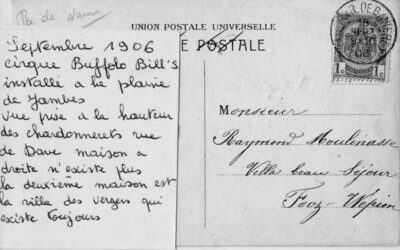 Rue de Dave
UNION POSTALE UNIVERSELLE
E POSTALE
Septembre 1906
cirque Buffolo Bill's
installé a la plaine
de Jambes
vue prise a la hauteur
des chardonnerets rue
de Dave maison a
droite n'existe plus
la deuxième maison est
la villa des vergers qui
existe toujours
1c 1c
Monsieur
Raymond Moulinasse
Villa beau Séjour
Fooz-Wépion